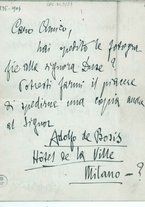 Caro Amico,
hai spedito le fotogra
fie alla signora Duse?
Potresti farmi il piacere
di spedirne una copia anche
al Signor
Adolfo de Bosis
Hôtel de la Ville
Milano - ?